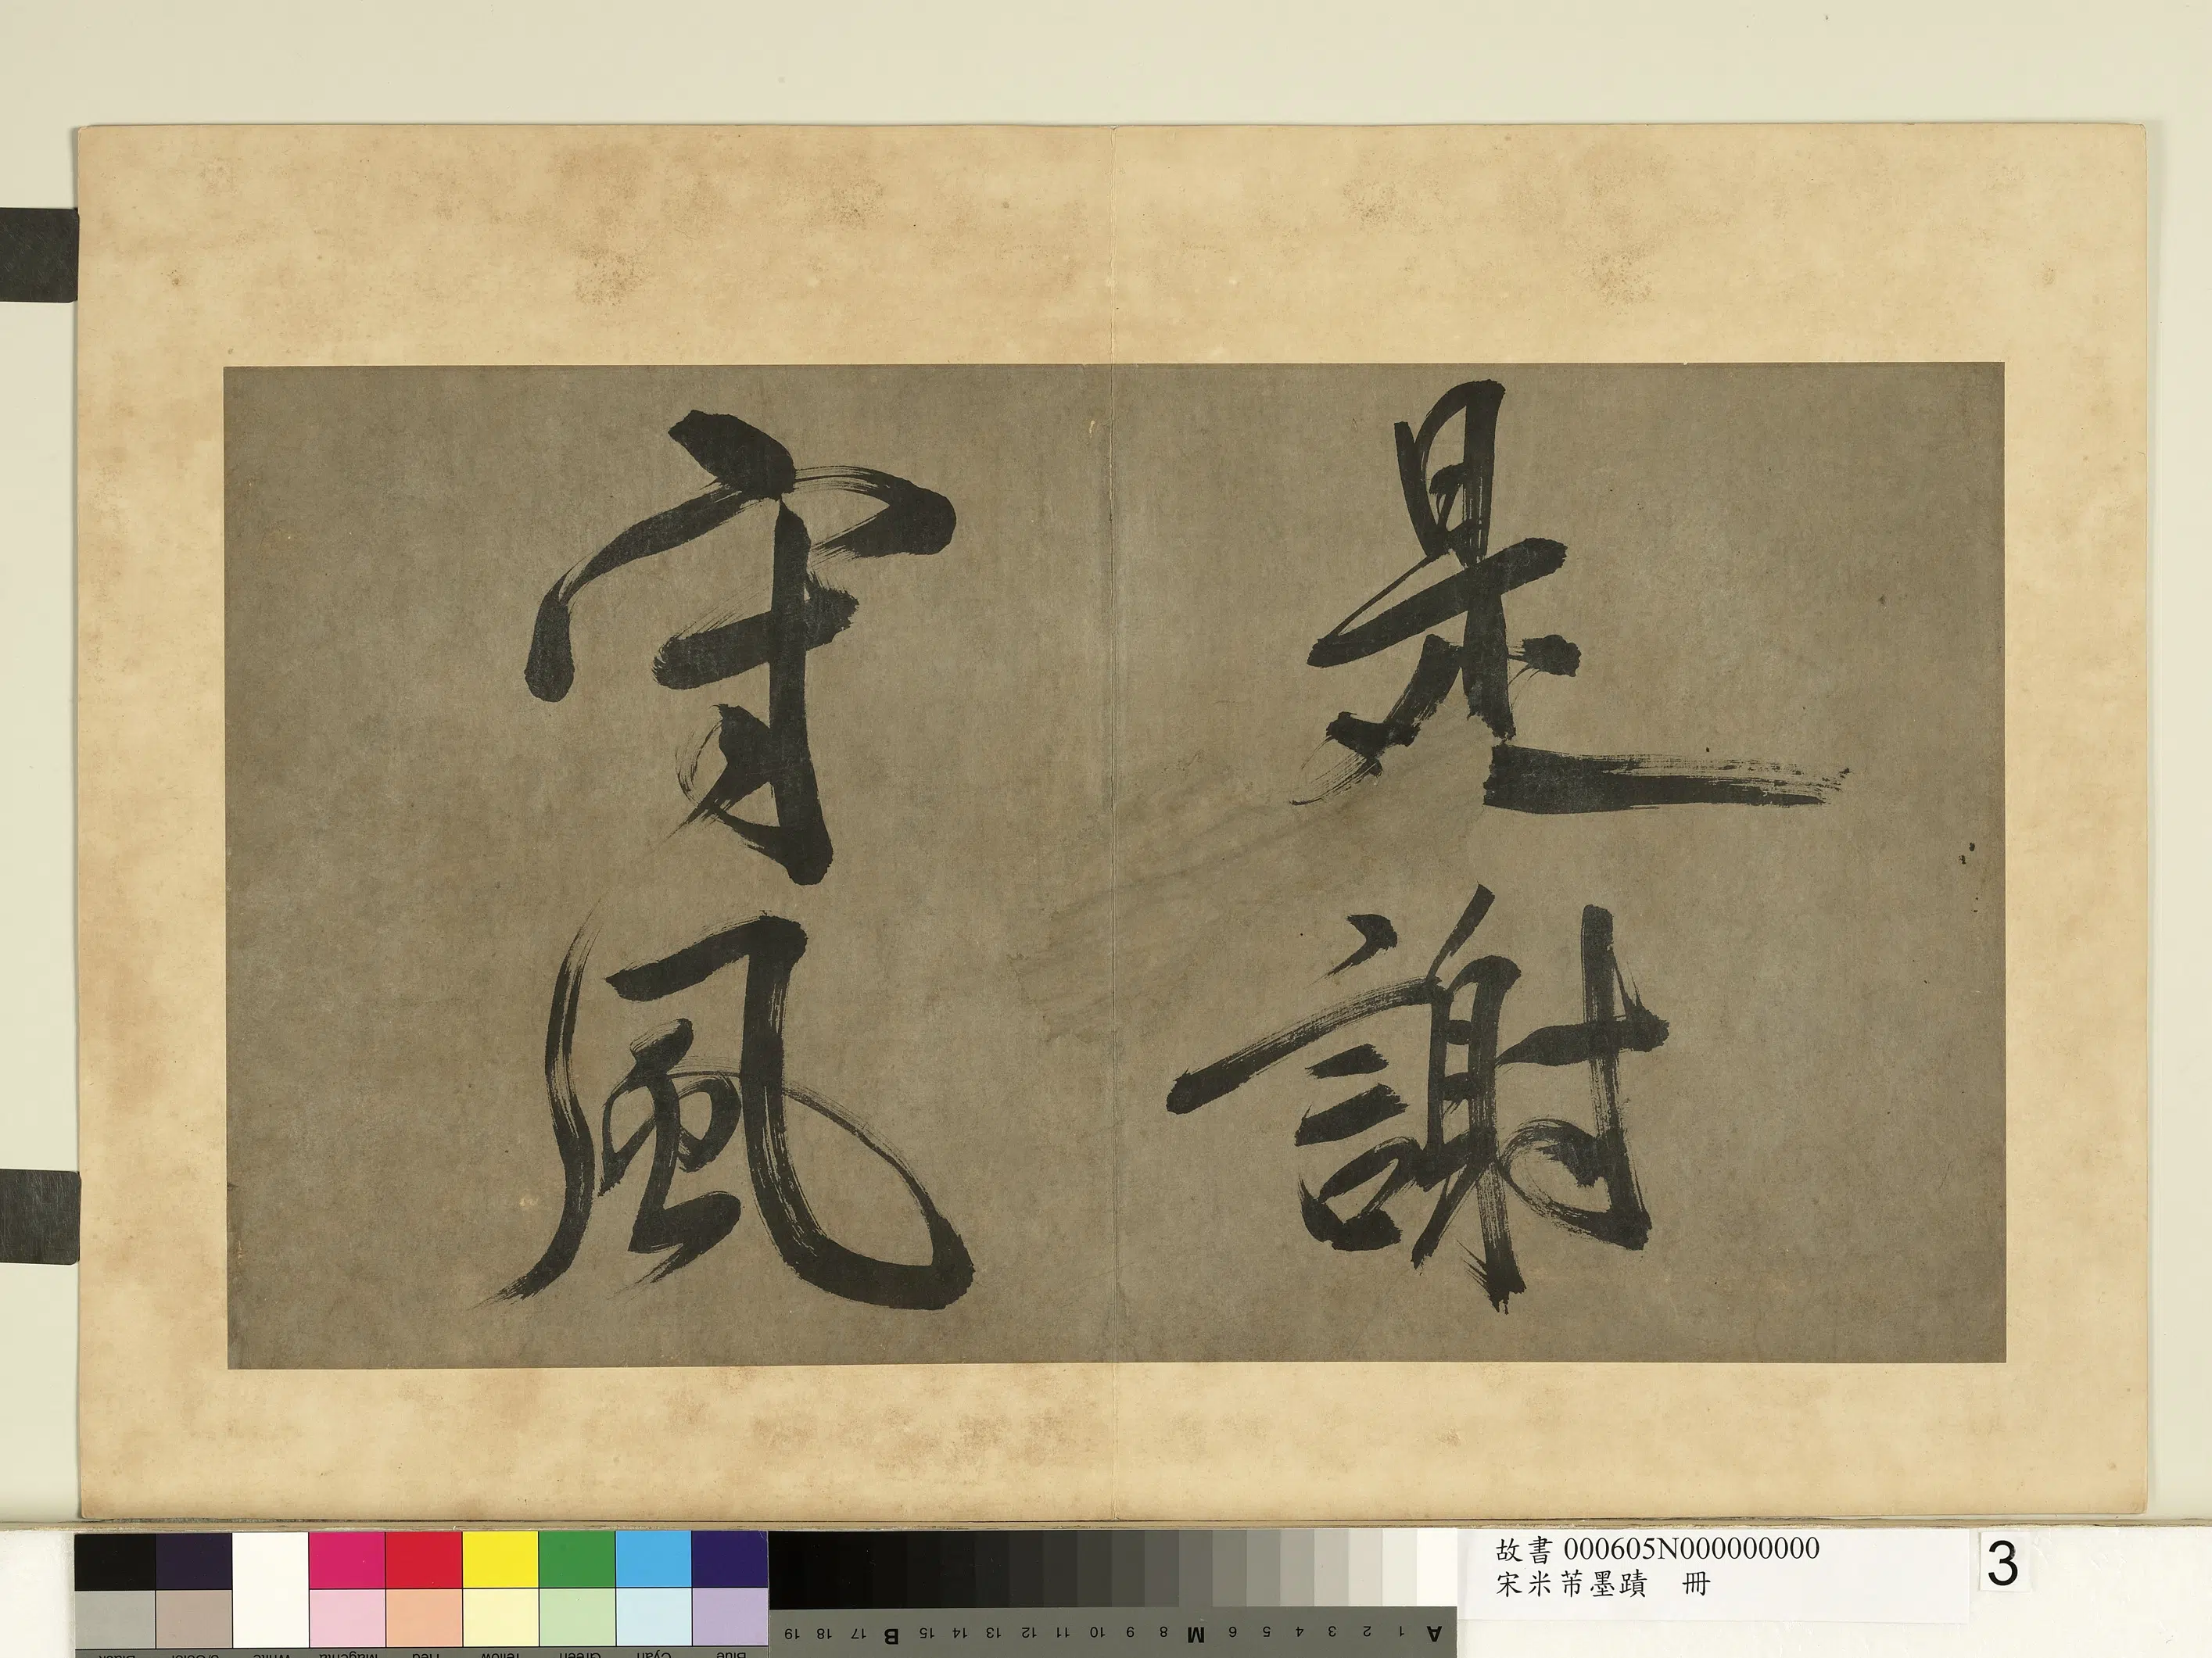 是謝
守風
故書 000605N000000000
宋米芾墨蹟 冊
3
A 1 2 3 4 5 6 M 8 9 10 11 12 13 14 15 B 17 18 19
Blue Cyan Green Yellow Red Magenta White 3/Color Black